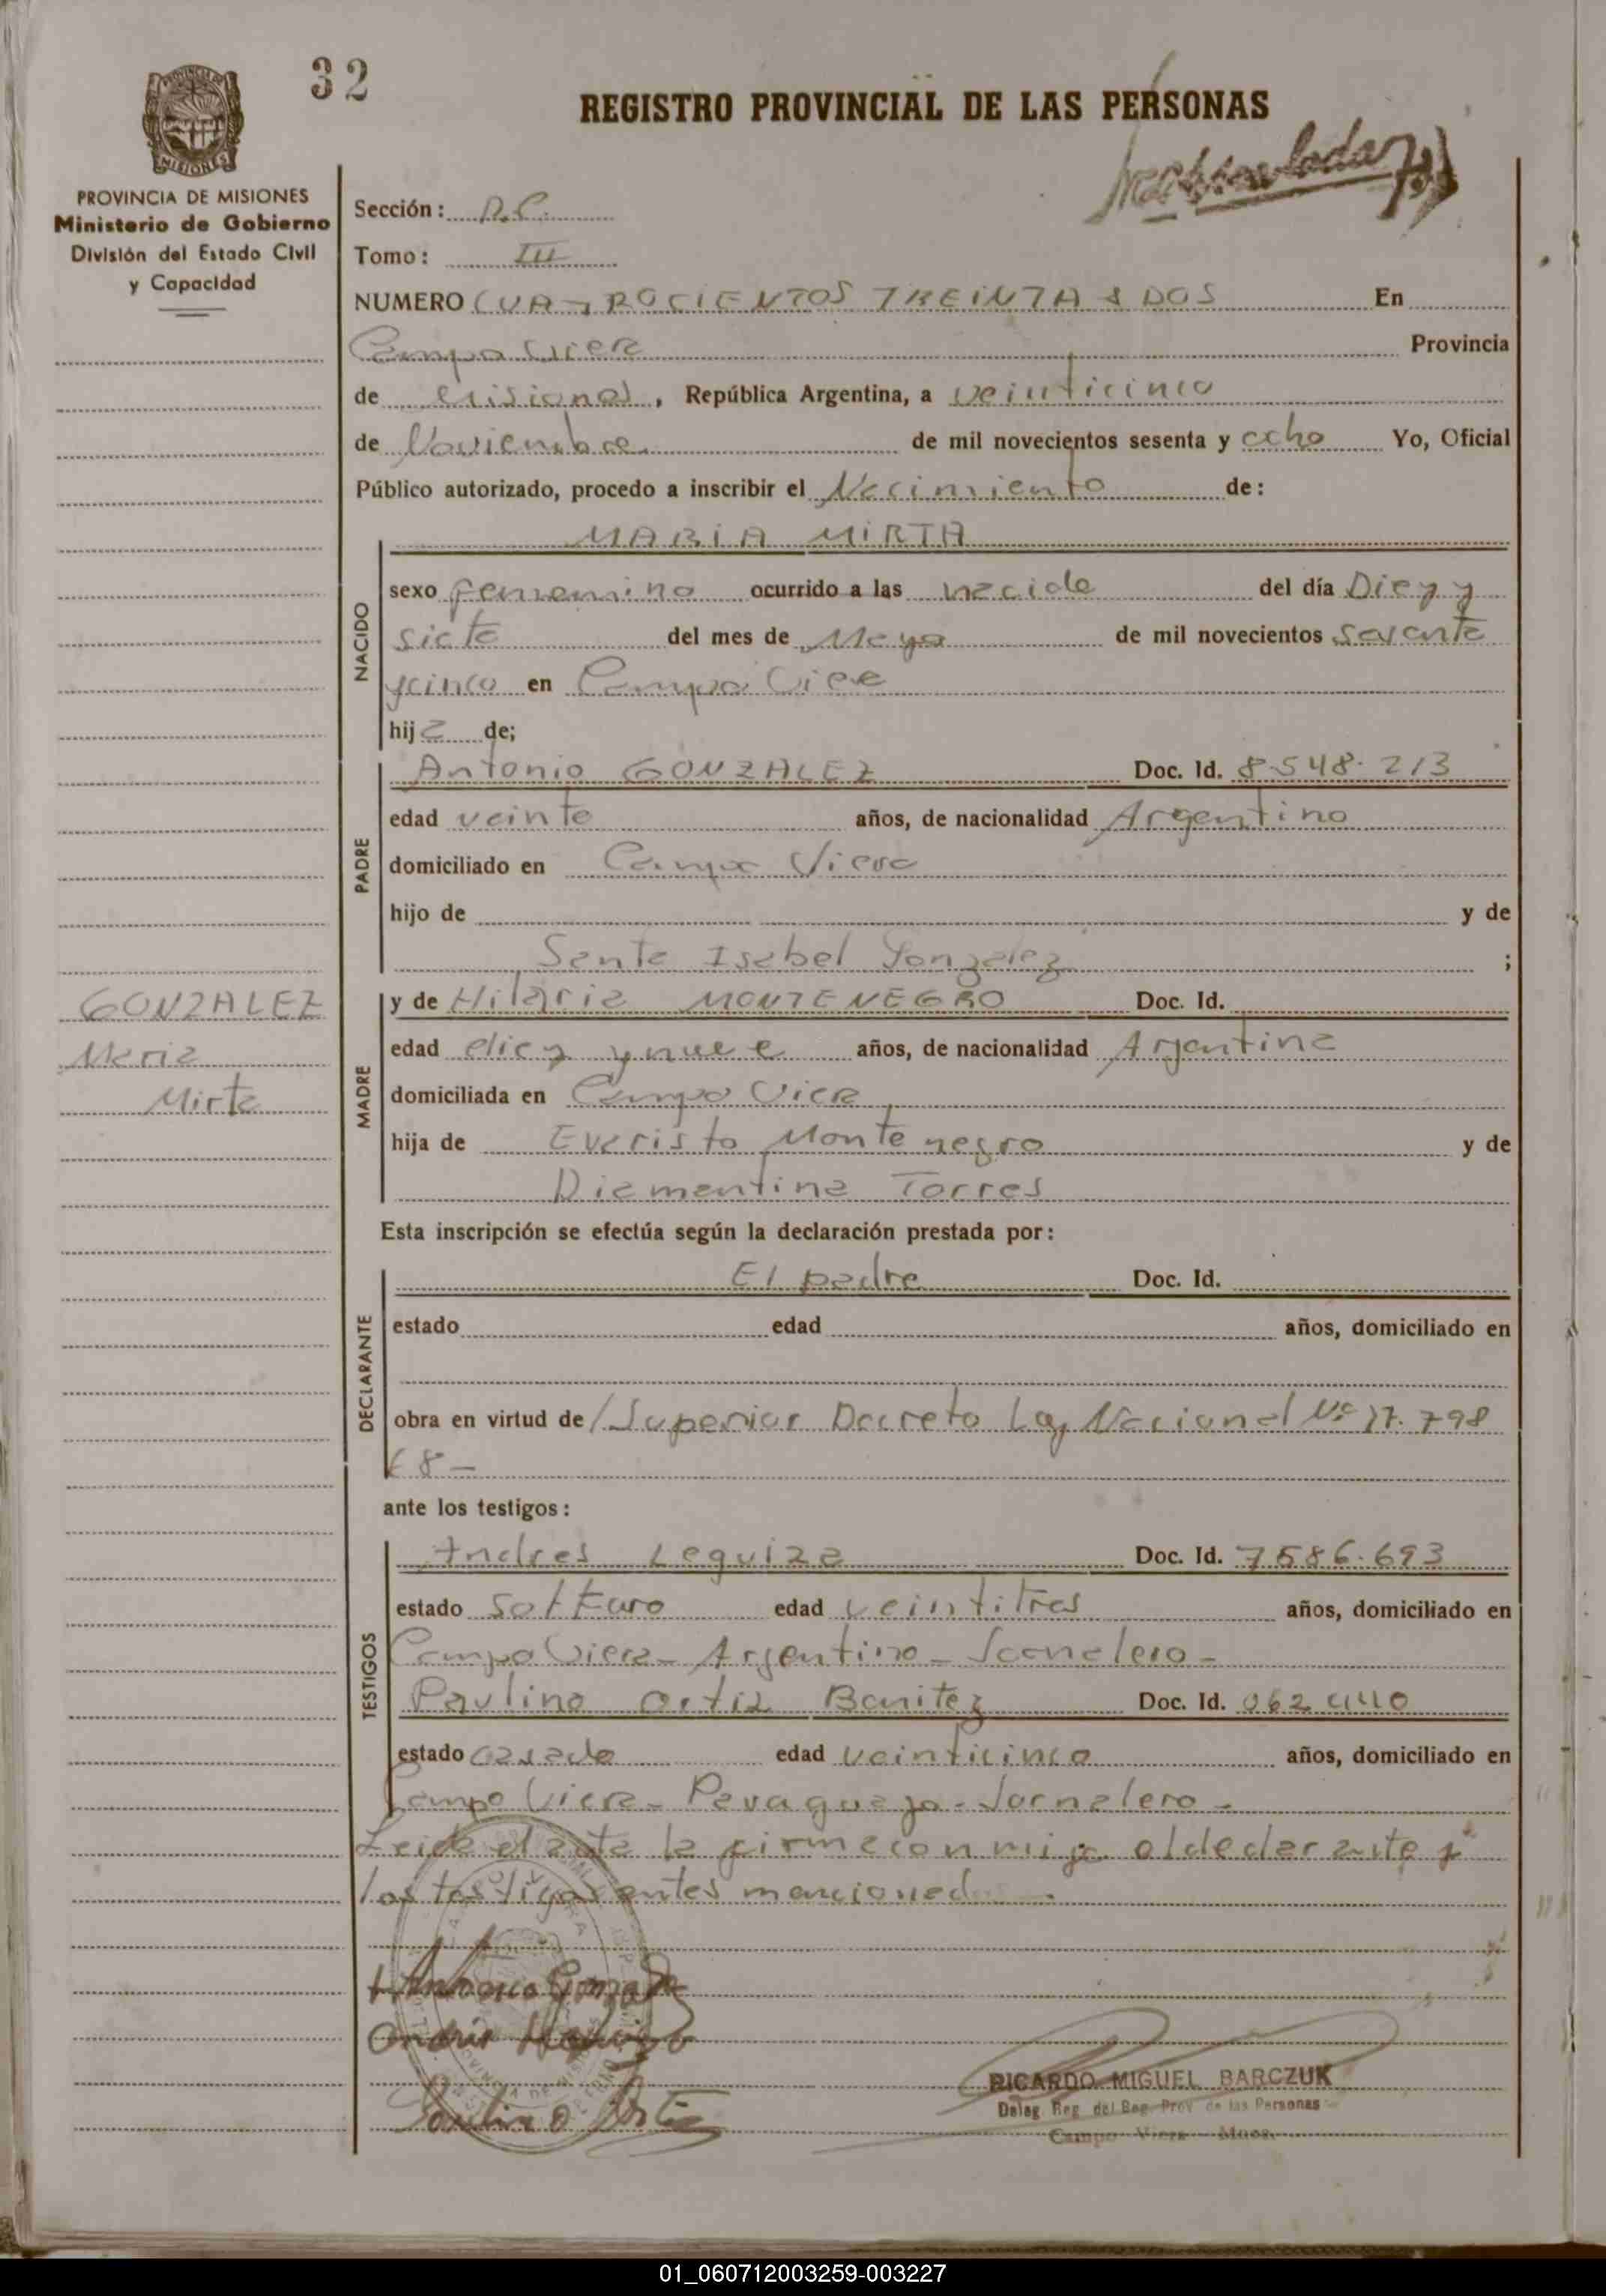 32
REGISTRO PROVINCIAL DE LAS PERSONAS
PROVINCIA DE MISIONES
Ministerio de Gobierno
División del Estado Civil
y Capacidad
Sección:
Tomo: III
NUMERO CUATROCIENTOS TREINTA Y DOS En
Campo Viera Provincia
de Misiones, República Argentina, a veinticinco
de Noviembre de mil novecientos sesenta y ocho Yo, Oficial
Público autorizado, procedo a inscribir el Nacimiento de:
MARIA MIRTA
NACIDO
sexo femenino ocurrido a las nacida del día Diez y
siete del mes de Mayo de mil novecientos sesenta
y cinco en Campo Viera
hija de;
PADRE
Antonio GONZALEZ Doc. Id. 8.548.213
edad veinte años, de nacionalidad Argentino
domiciliado en Campo Viera
hijo de y de
Santa Isabel Gonzalez ;
GONZALEZ
Maria
Mirta
MADRE
y de Hilaria MONTENEGRO Doc. Id.
edad diez y nueve años, de nacionalidad Argentina
domiciliada en Campo Viera
hija de Evaristo Montenegro y de
Diamantina Torres
Esta inscripción se efectúa según la declaración prestada por:
DECLARANTE
El padre Doc. Id.
estado edad años, domiciliado en
obra en virtud de / Superior Decreto Ley Nacional Nº 17.798
68-
ante los testigos:
TESTIGOS
Andres Leguiza Doc. Id. 7.586.693
estado Soltero edad veintitres años, domiciliado en
Campo Viera- Argentino- Jornalero-
Paulino Ortiz Benitez Doc. Id. 062440
estado casado edad veinticinco años, domiciliado en
Campo Viera- Paraguayo- Jornalero-
Leida el acta la firma con migo el declarante y
los testigos antes mencionad
Antonio Gonzalez
Paulino Ortiz
RICARDO MIGUEL BARCZUK
Deleg. Reg. del Reg. Prov. de las Personas
Campo Viera - Mnes.
01_060712003259-003227